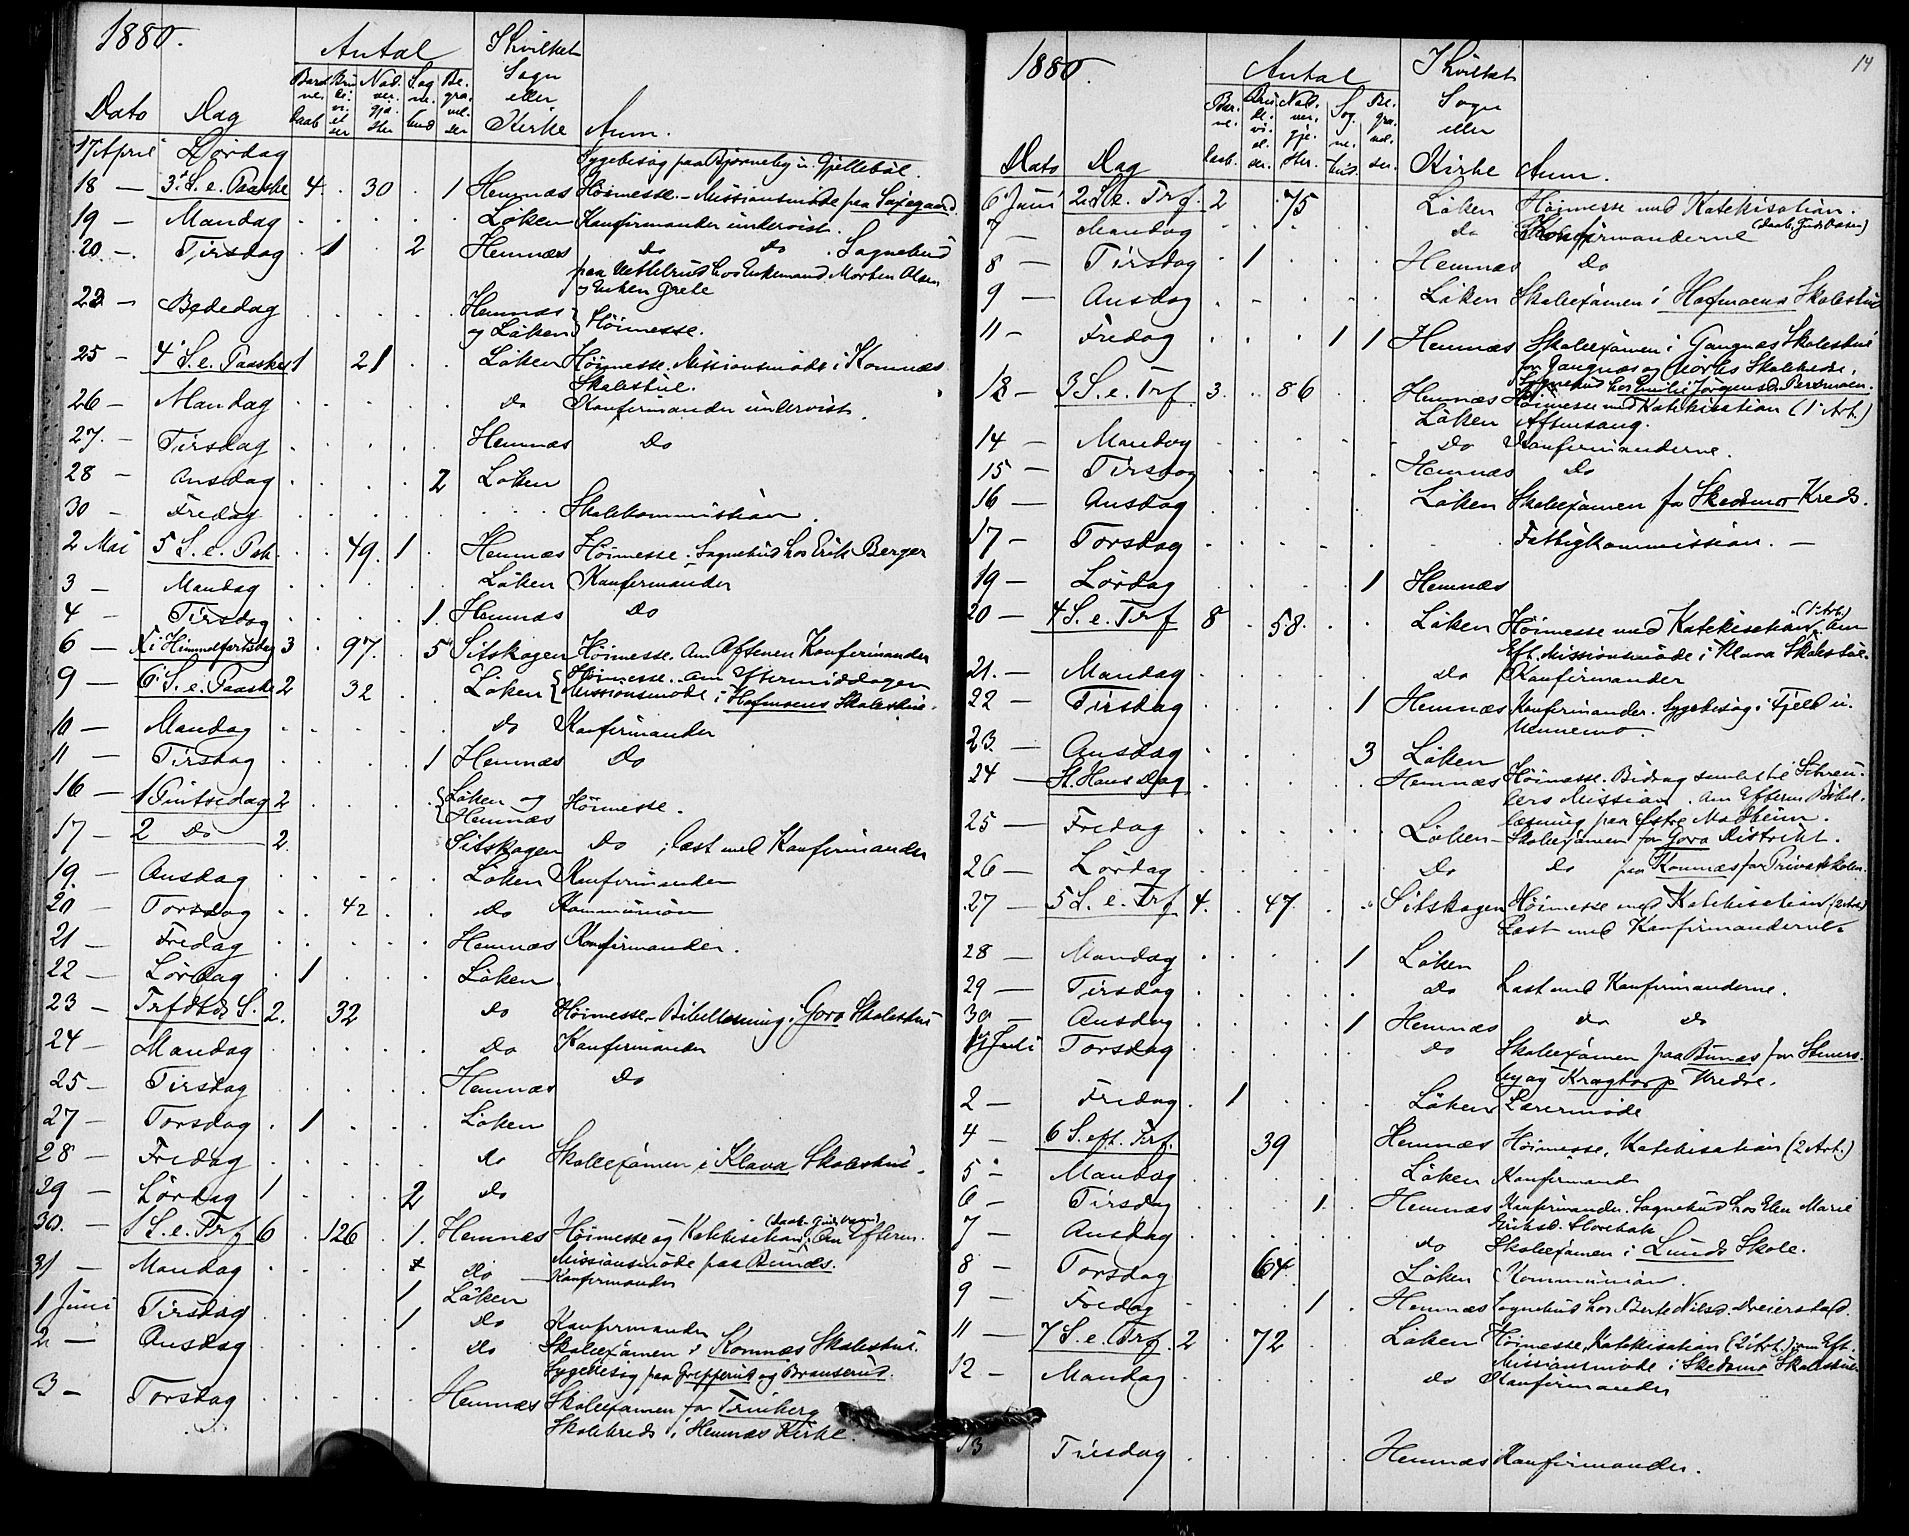 1880.
Antal
Dato Dag Barne-daab Brudevielser Nadvergjæster Sognebud Begravelser I hvilket Sogn eller Kirke Anm.
17 April Lørdag Sygebesøg paa Bjørneby u. Gjellebøl.
18 — 3. S. e. Paaske 4 . 30 . 1 Hemnæs Høimesse. – Missionsmøde paa Saxegaard.
19 — Mandag . . . . . Løken Konfirmander undervist.
20. – Tirsdag . 1 . 2 Hemnæs do do. Sognebud
paa hos Enkemand Morten Olsen
og Enken Grete
23 — Bededag . . . . . Hemnæs og Løken } Høimesse.
25 — 4 S. e. Paaske 1 . 21 . . Løken Høimesse. Missionsmøde i Komnæs
Skolestue.
26 — Mandag . . . . . do Konfirmander undervist.
27. — Tirsdag . . . . . Hemnæs Do
28 — Onsdag . . . . 2 Løken
30 – Fredag . . . . . . . . Skolekommission.
2 Mai 5 S. e. Pask. . . 49. 1 . Hemnæs Høimesse. Sognebud hos Erik Berger
3 — Mandag . . . . . Løken Konfirmander
4 — Tirsdag . . . . 1. Hemnæs Do
6 — Kr. Himmelfartsdag 3 . 97. . 5 Sitskogen Høimesse. Om Aftenen Konfirmander
9 — 6 S. e. Paaske 2 . 32 . . Løken { Høimesse. Om Eftermiddagen
Missionsmøde i Hofmoens Skolestue.
10 — Mandag . . . . . do Konfirmander
11 — Tirsdag . . . . 1 Hemnæs Do
16 — 1 Pintsedag 2 . . . . { Løken og Hemnæs Høimesse.
17 — 2 Do 2. Sitskogen Do ; læst med Konfirmander
19. — Onsdag . . . . . Løken Konfirmander
20 — Torsdag . . 42 . . do Kommunion
21 — Fredag . . . . . Hemnæs Konfirmander.
22 — Lørdag . 1 . . . Løken
23 — Trfdhds S. 2. . 32 do Høimesse – Bibellæsning i Gora Skolestue
24 — Mandag . . . . . do Konfirmander
25 — Tirsdag . . . . . Hemnæs Do
27 — Torsdag . 1 . . . Løken
28 — Fredag . . . . . do Skoleexamen i Klava Skolestue.
29 — Lørdag 1 . . . 2 do
30. — 1 S. e. Trf 6 . 126 . 1. Hemnæs Høimesse og Katekisation. (Daab. Guds Navn) Om Efterm.
Missionsmøde paa Bunæs.
31 — Mandag . . . . do Konfirmander
1 Juni Tirsdag . . . . 1 Løken
do Konfirmander
2 — Onsdag . . . . 1 do Skoleexamen i Komnæs Skolestue.
Sygebesøg paa Grefferud og Branserud.
3 — Torsdag . . . . . Hemnæs Skoleexamen for Trinberg
Skolekreds i Hemnæs Kirke.
14
1880.
Antal
Dato Dag Barne-daab. Brudevielser. Nadvergjester. Sognebud. Begravelser. I hvilket Sogn eller Kirke Anm.
6 Juni 2. S. e. Trf. 2 75 Løken Høimesse med Katekisation.
(Daab, Guds Navn)
7 — Mandag . . . . . do Konfirmanderne
8 — Tirsdag . 1 . . . Hemnæs do
9 — Onsdag . . . . . Løken Skoleexamen i Hofmoens Skolestue
11 — Fredag . . . 1 1 Hemnæs Skoleexamen i Gangnæs Skolestue
for Gangnæs og Mørks Skolekredse.
Sognebud hos Emilie Jørgensd. Persmoen.
13 — 3 S. e. Trf. 3. . 86 . . Hemnæs Høimesse med Katekisation (1 Art.)
Løken Aftensang.
14 — Mandag . . . . . do Konfirmanderne.
15 — Tirsdag . . . . . Hemnæs Do
16 — Onsdag . . . . . Løken Skoleexamen fo Skedsmo Kreds.
17 — Torsdag . . . . . . Fattigkommission. —
19 — Lørdag . . . . 1 Hemnæs
20 — 4 S. e. Trf 8 . 58. . . Løken Høimesse med Katekisation (1 Art.). Om
Eft. Missionsmøde i Klava Skolestue.
21. — Mandag . . . . . do Konfirmander
22 — Tirsdag . . . . 1 Hemnæs Konfirmander. Sygebesøg i Fjeld u.
Nennemo.
23. — Onsdag . . . . 3 Løken
24 — St. Hans Dag . . . . . Hemnæs Høimesse. Bidrag samlet til Schreu-
ders Mission. Om Efterm Bibel-
læsning paa Østre Madheim.
25 — Fredag . . . . . Løken – Skoleexamen for Gora Distrikt.
26 — Lørdag . . . . . Do do paa Komnæs for Privatskolen.
27 — 5 S. e. Trf 4. . 47 . . Sitskogen Høimesse med Katekisation (2 Art)
Læst med Konfirmanderne.
28 — Mandag . . . . 1 Løken
29 — Tirsdag . . . . . do Læst med Konfirmanderne.
30 — Onsdag . . . . 1 Hemnæs do do
1 Juli Torsdag . . . . . do Skoleexamen paa Bunæs for Steners-
by og Kragtorp Kredse.
2 — Fredag . 1 . . . Løken Lærermøde
4 — 6 S. eft. Trf. 39 Hemnæs Høimesse, Katekisation (2 Art.)
5 — Mandag Løken Konfirmand
6 — Tirsdag . . . 1. . Hemnæs Konfirmander. Sognebud hos Elen Marie
Eriksd. Slorebak
7 — Onsdag . . . . . do Skoleexamen i Lunds Skole.
8 — Torsdag 64. Løken Kommunion.
9 — Fredag . . . 1 . Hemnæs Sognebud hos Berte Nilsd. Dreierstad.
11 — 7 S. e. Trf. 2 . 72 . . Løken Høimesse, Katekisation (2 Art.) om Eft.
Missionsmøde i Skedsmo Skolestue
12 — Mandag . . . . . do Konfirmander
13 Tirsdag . . . . . Hemnæs Konfirmander.